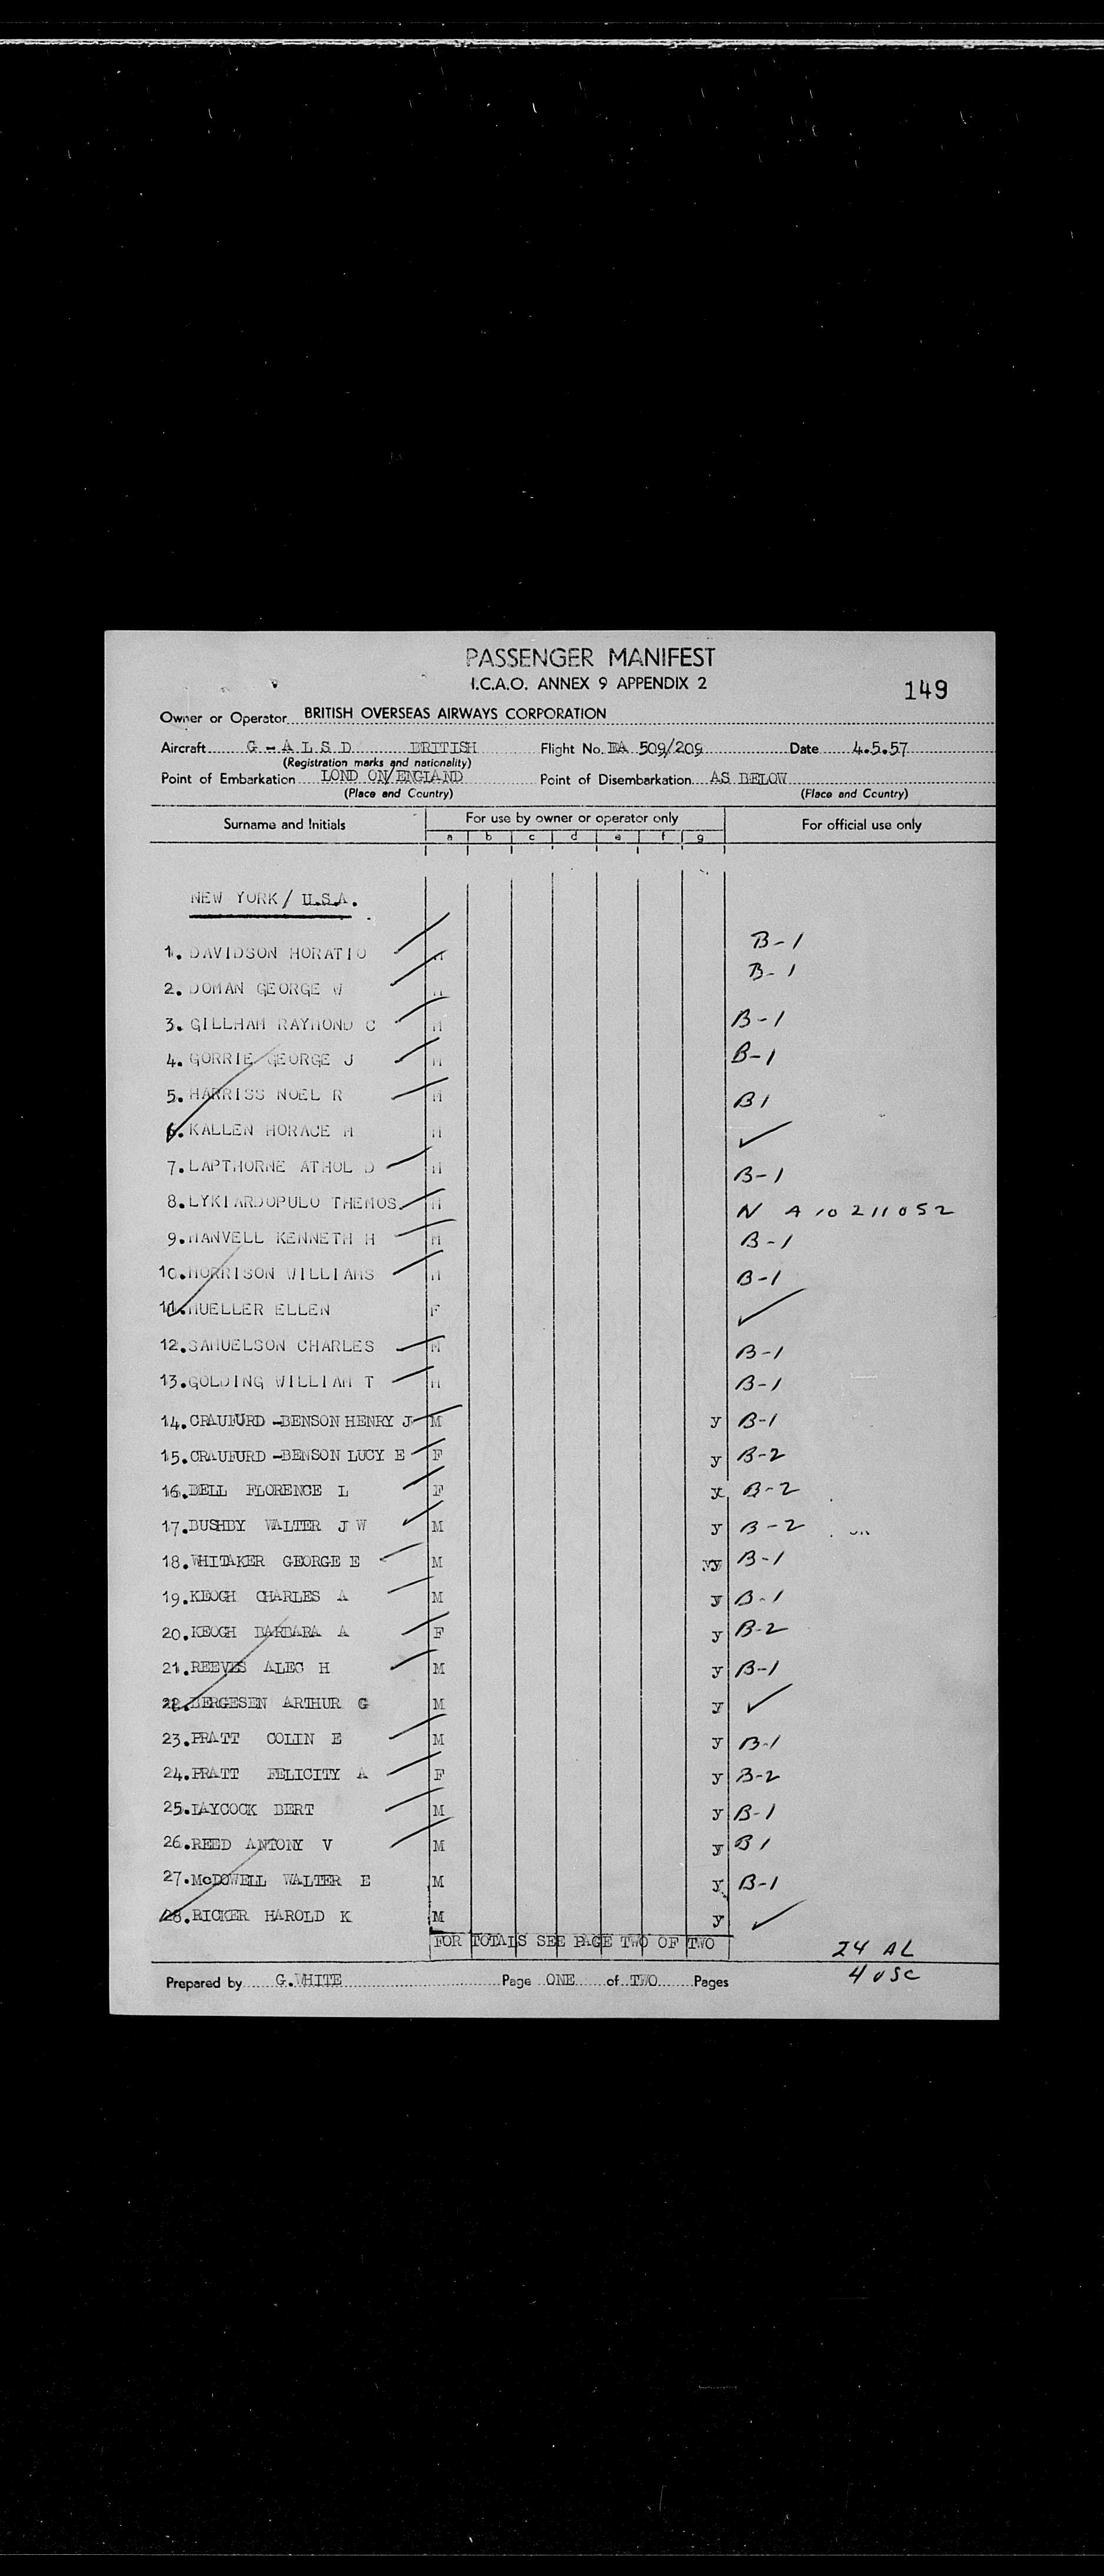 PASSENGER MANIFEST
I.C.A.O. ANNEX 9 APPENDIX 2
149
Owner or Operator BRITISH OVERSEAS AIRWAYS CORPORATION
Aircraft G-ALSD BRITISH Flight No. BA 509/209 Date 4.5.57
(Registration marks and nationality)
Point of Embarkation LOND ON/ENGLAND Point of Disembarkation AS BELOW
(Place and Country) (Place and Country)
Surname and Initials For use by owner or operator only For official use only
a b c d e f g
NEW YORK/ U.S.A.
1. DAVIDSON HORATIO M B-1
2. DOMAN GEORGE W M B-1
3. GILLHAM RAYMOND C M B-1
4. GORRIE GEORGE J M B-1
5. HARRISS NOEL R M B1
6. KALLEN HORACE M M ✓
7. LAPTHORNE ATHOL D M B-1
8. LYKIARDOPULO THEMOS M N A10211052
9. MANVELL KENNETH H M B-1
10. MORRISON WILLIAMS M B-1
11. MUELLER ELLEN F ✓
12. SAMUELSON CHARLES M B-1
13. GOLDING WILLIAM T M B-1
14. CRAUFURD -BENSON HENRY J M y B-1
15. CRAUFURD -BENSON LUCY E F y B-2
16. BELL FLORENCE L F y B-2
17. BUSHBY WALTER J W M y B-2
18. WHITAKER GEORGE E M yy B-1
19. KEOGH CHARLES A M y B-1
20. KEOGH BARBARA A F y B-2
21. REEVES ALEC H M y B-1
22. BERGESEN ARTHUR G M y ✓
23. PRATT COLIN E M y B-1
24. PRATT FELICITY A F y B-2
25. LAYCOCK BERT M y B-1
26. REED ANTONY V M y B1
27. McDOWELL WALTER E M y B-1
28. RICKER HAROLD K M y ✓
FOR TOTALS SEE PAGE TWO OF TWO
24 AL
4 USC
Prepared by G.WHITE Page ONE of TWO Pages